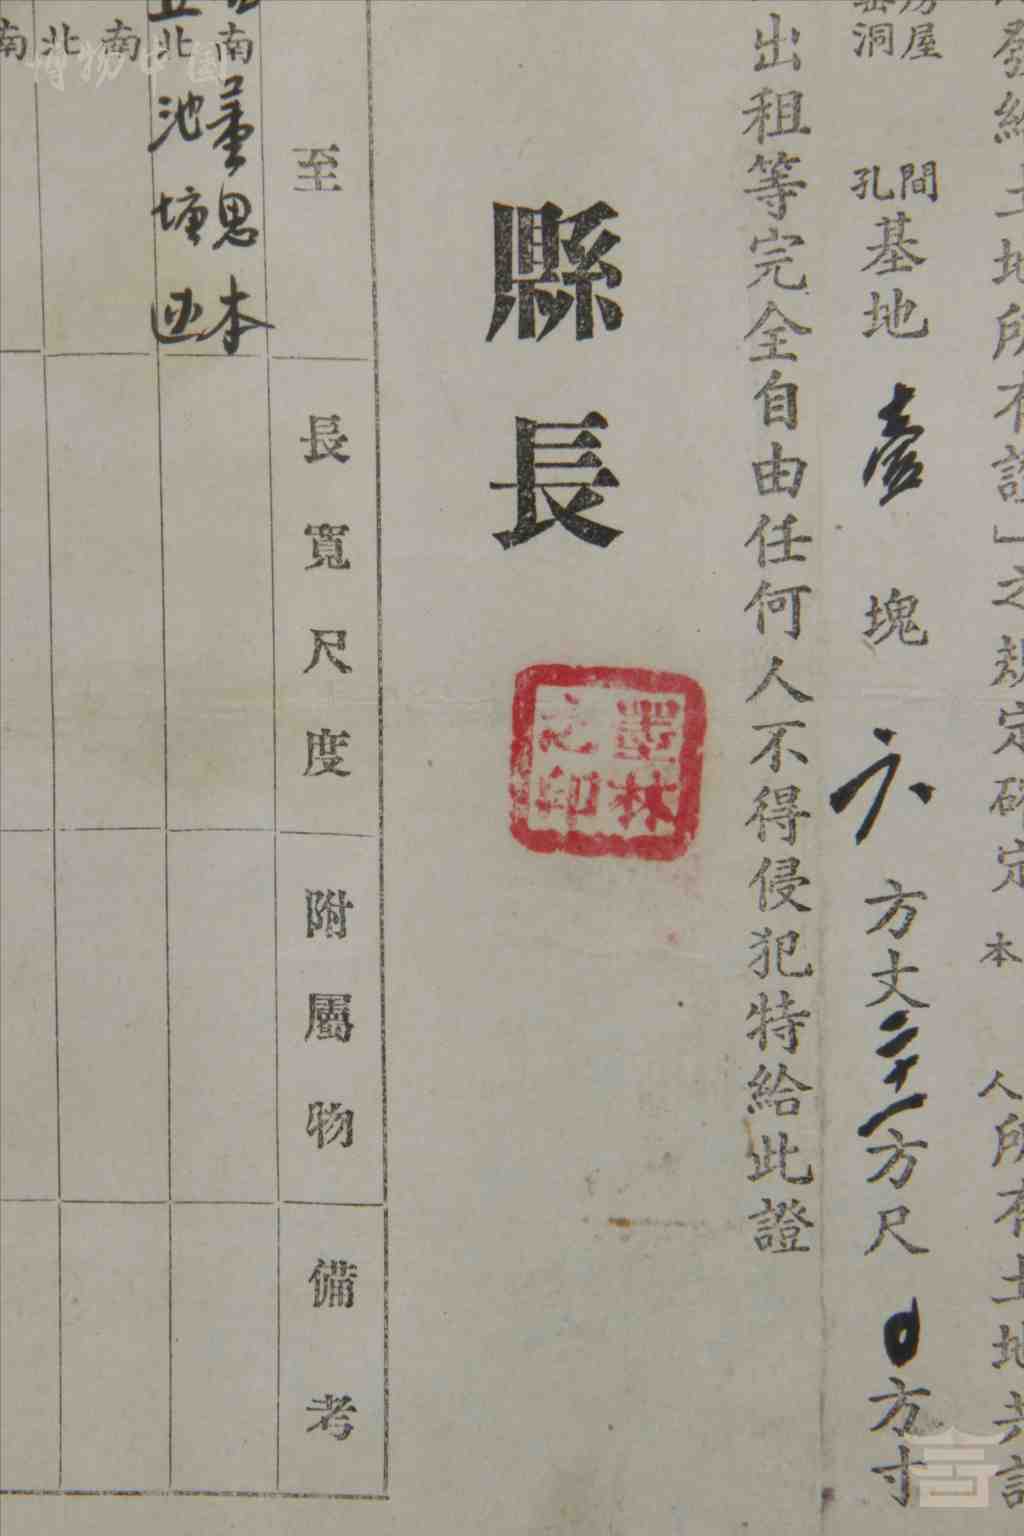 發給土地所有證」之規定確定
本
人
所有土地共計
房屋
窑洞
間
孔
基地壹塊六方丈二十一方尺0方寸
出租等完全自由任何人不得侵犯特給此證
縣長
墨林
之印
至
長寬尺度
附屬物
備考
南 董思本
北 池塘边
南
北
南
博物中国